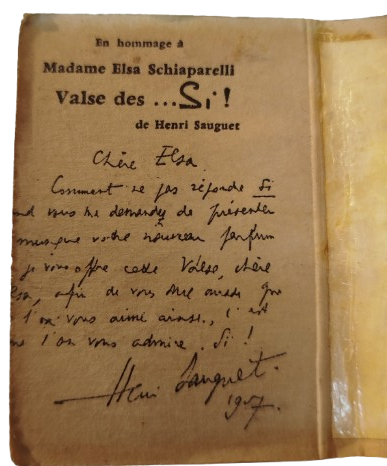 En hommage à
Madame Elsa Schiaparelli
Valse des ...Si!
de Henri Sauguet
Chère Elsa
Comment ne pas répondre Si
nd vous me demandez de présenter
musique votre nouveau parfum
je vous offre cette Valse, chère
lsa, afin de vous dire aussi que
l'on vous aime ainsi, c'est
l'on vous admire. Si!
Henri Sauguet.